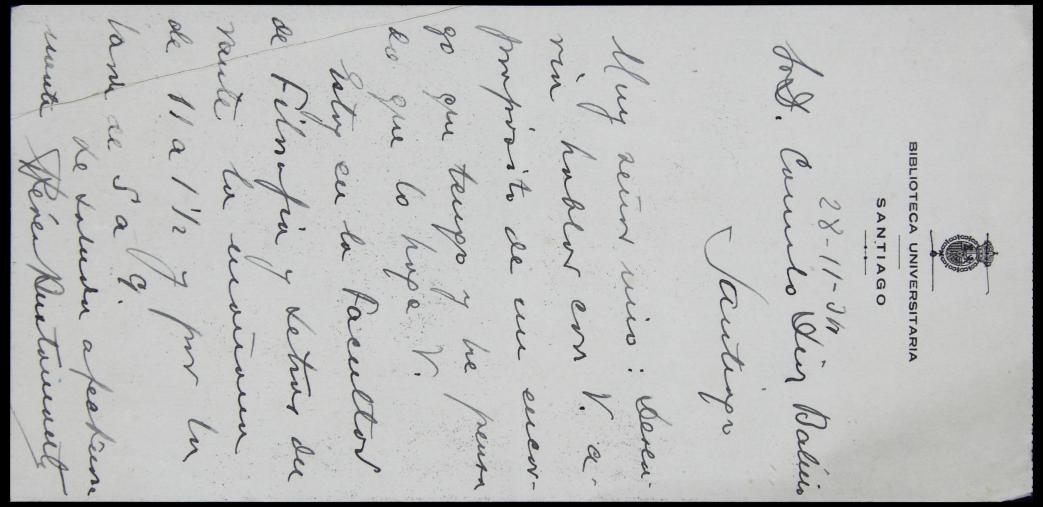 BIBLIOTECA UNIVERSITARIA
SANTIAGO
28-11-34
Sr D. Camilo Díaz Baliño
Santiago
Muy señor mio: Desea-
ria hablar con V. a
proposito de un encar-
go que tengo y he pensa
do que lo haga V.
Estoy en la Facultad
de Filosofia y Letras du
rante la mañana
de 11 a 1 ½ y por la
tarde de 5 a 9.
Le saluda afectuosa
mente
Pérez Bustamante